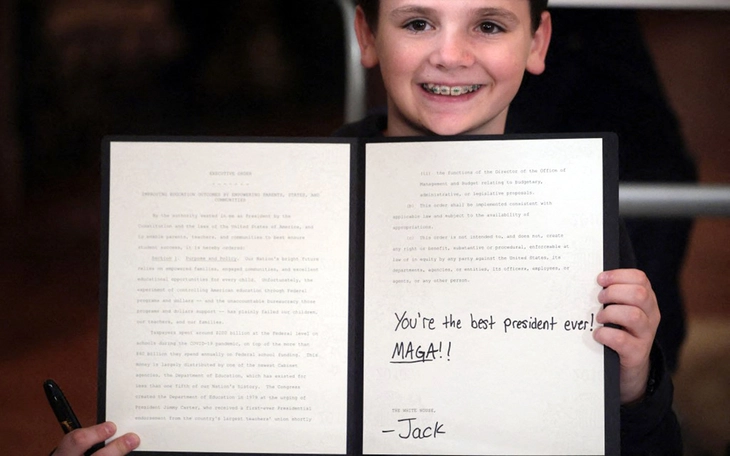 EXECUTIVE ORDER
IMPROVING EDUCATION OUTCOMES BY EMPOWERING PARENTS, STATES, AND
COMMUNITIES
By the authority vested in me as President by the
Constitution and the laws of the United States of America, and
to enable parents, teachers, and communities to best ensure
student success, it is hereby ordered:
Section 1. Purpose and Policy. Our Nation's bright future
relies on empowered families, engaged communities, and excellent
educational opportunities for every child. Unfortunately, the
experiment of controlling American education through Federal
programs and dollars -- and the unaccountable bureaucracy those
programs and dollars support -- has plainly failed our children,
our teachers, and our families.
Taxpayers spent around $200 billion at the Federal level on
schools during the COVID-19 pandemic, on top of the more than
$60 billion they spend annually on Federal school funding. This
money is largely distributed by one of the newest Cabinet
agencies, the Department of Education, which has existed for
less than one fifth of our Nation's history. The Congress
created the Department of Education in 1979 at the urging of
President Jimmy Carter, who received a first-ever Presidential
endorsement from the country's largest teachers' union shortly
(ii) the functions of the Director of the Office of
Management and Budget relating to budgetary,
administrative, or legislative proposals.
(b) This order shall be implemented consistent with
applicable law and subject to the availability of
appropriations.
(c) This order is not intended to, and does not, create
any right or benefit, substantive or procedural, enforceable at
law or in equity by any party against the United States, its
departments, agencies, or entities, its officers, employees, or
agents, or any other person.
You're the best president ever!
MAGA!!
THE WHITE HOUSE,
-Jack